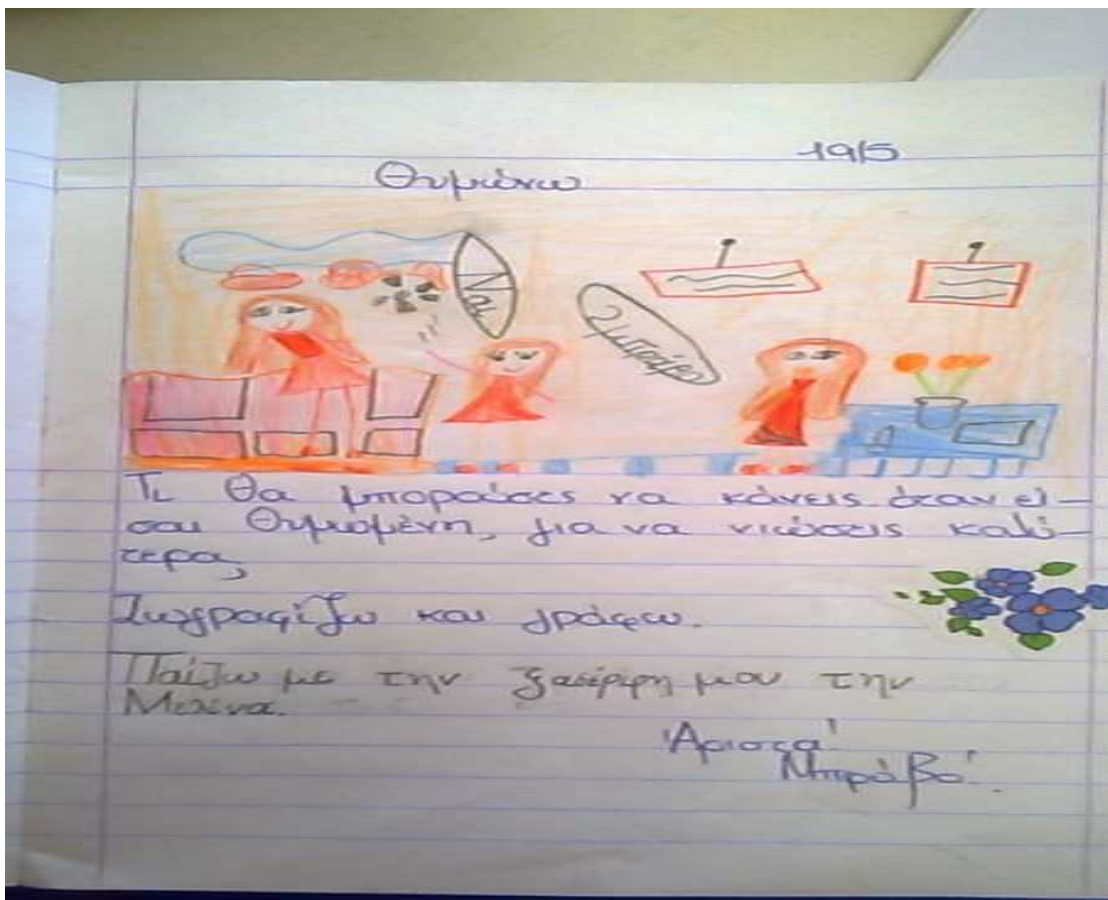 19/5
Θυμώνω
Ναι
Μπράβο
Τι θα μπορούσες να κάνεις όταν εί-
σαι θυμωμένη, για να νιώσεις καλύ-
τερα;
Ζωγραφίζω και γράφω.
Παίζω με την ξαδέρφη μου την
Μελινα.
Άριστα!
Μπράβο!